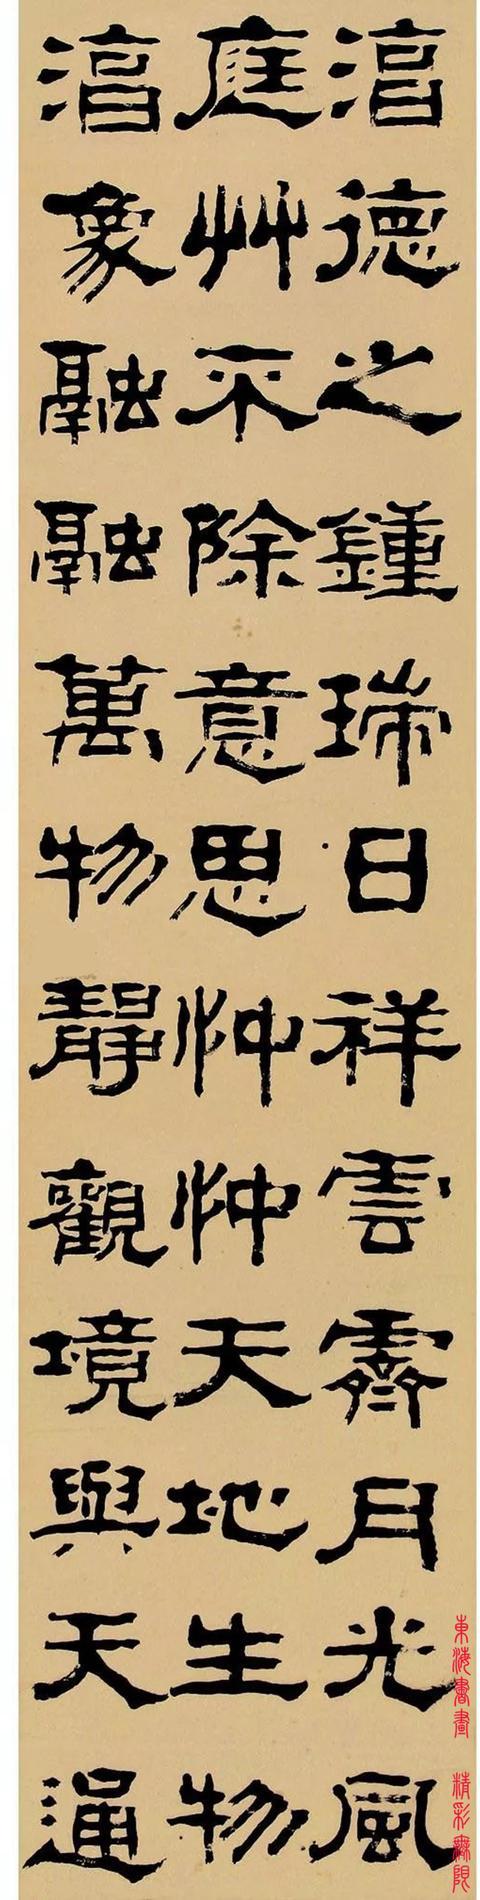 湻德之鍾瑞日祥雲霽月光風
庭艸不除意思忡忡天地生物
湻象融融萬物靜觀境與天通
東海書畫 精彩無限